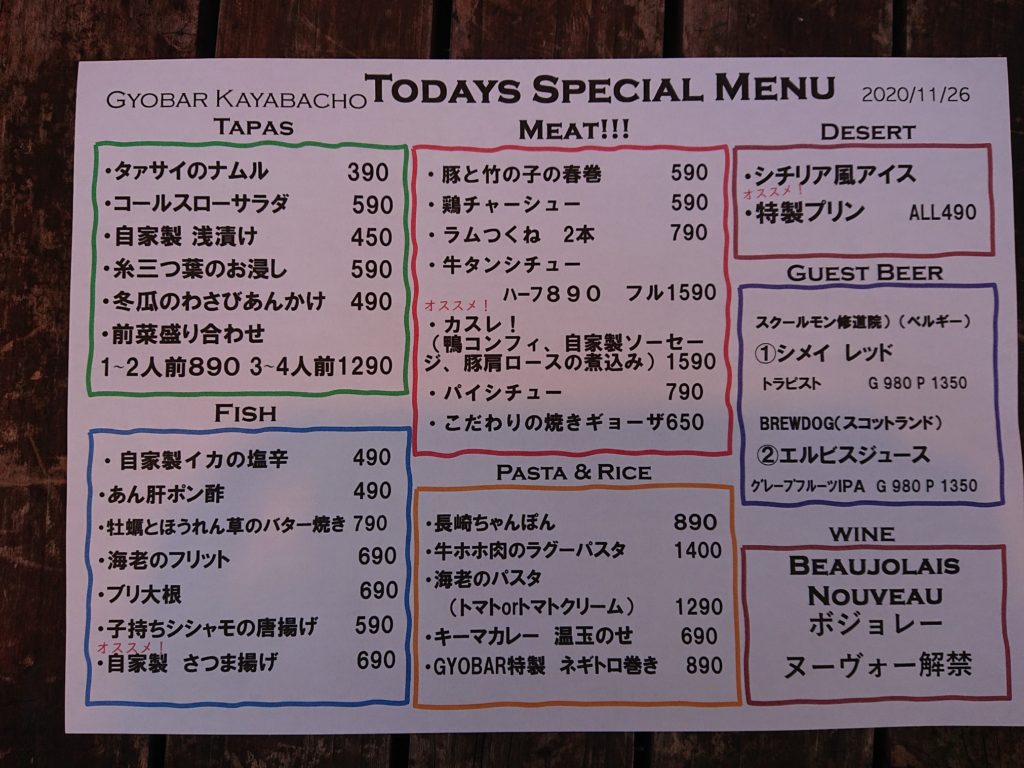 GYOBAR KAYABACHO TODAYS SPECIAL MENU 2020/11/26
TAPAS
・タァサイのナムル 390
・コールスローサラダ 590
・自家製 浅漬け 450
・糸三つ葉のお浸し 590
・冬瓜のわさびあんかけ 490
・前菜盛り合わせ
1~2人前890 3~4人前1290
FISH
・自家製イカの塩辛 490
・あん肝ポン酢 490
・牡蠣とほうれん草のバター焼き 790
・海老のフリット 690
・ブリ大根 690
・子持ちシシャモの唐揚げ 590
オススメ！
・自家製 さつま揚げ 690
MEAT!!!
・豚と竹の子の春巻 590
・鶏チャーシュー 590
・ラムつくね 2本 790
・牛タンシチュー
ハーフ８９０ フル1590
オススメ！
・カスレ！
（鴨コンフィ、自家製ソーセー
ジ、豚肩ロースの煮込み）1590
・パイシチュー 790
・こだわりの焼きギョーザ650
PASTA & RICE
・長崎ちゃんぽん 890
・牛ホホ肉のラグーパスタ 1400
・海老のパスタ
（トマトorトマトクリーム） 1290
・キーマカレー 温玉のせ 690
・GYOBAR特製 ネギトロ巻き 890
DESERT
・シチリア風アイス
オススメ！
・特製プリン ALL490
GUEST BEER
スクールモン修道院）（ベルギー）
①シメイ レッド
トラピスト G 980 P 1350
BREWDOG（スコットランド）
②エルビスジュース
グレープフルーツIPA G 980 P 1350
WINE
BEAUJOLAIS
NOUVEAU
ボジョレー
ヌーヴォー解禁